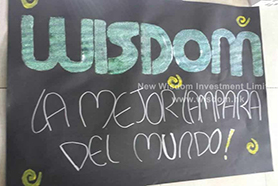 WISDOM
New Wisdom Investment Limi
www.wisdom.hk
LA MEJOR LAMPARA
DEL MUNDO!